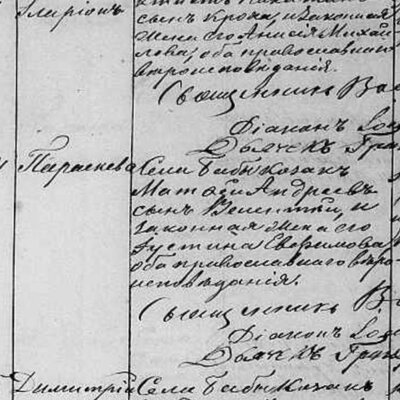 Иларіонъ
сынъ Крока, и законная
жена его Анисія Михай-
лова, оба православнаго
вѣроисповѣданія.
Священникъ Ва
Діаконъ
Дьячекъ Гри
Параскева
Села Бабы козакъ
Матѳей Андреевъ
сынъ Велентій, и
законная жена его
Іустина Евфимова
оба православнаго вѣро-
исповѣданія.
Священникъ В
Діаконъ
Дьячекъ Гри
Димитрій
Села Бабы козакъ